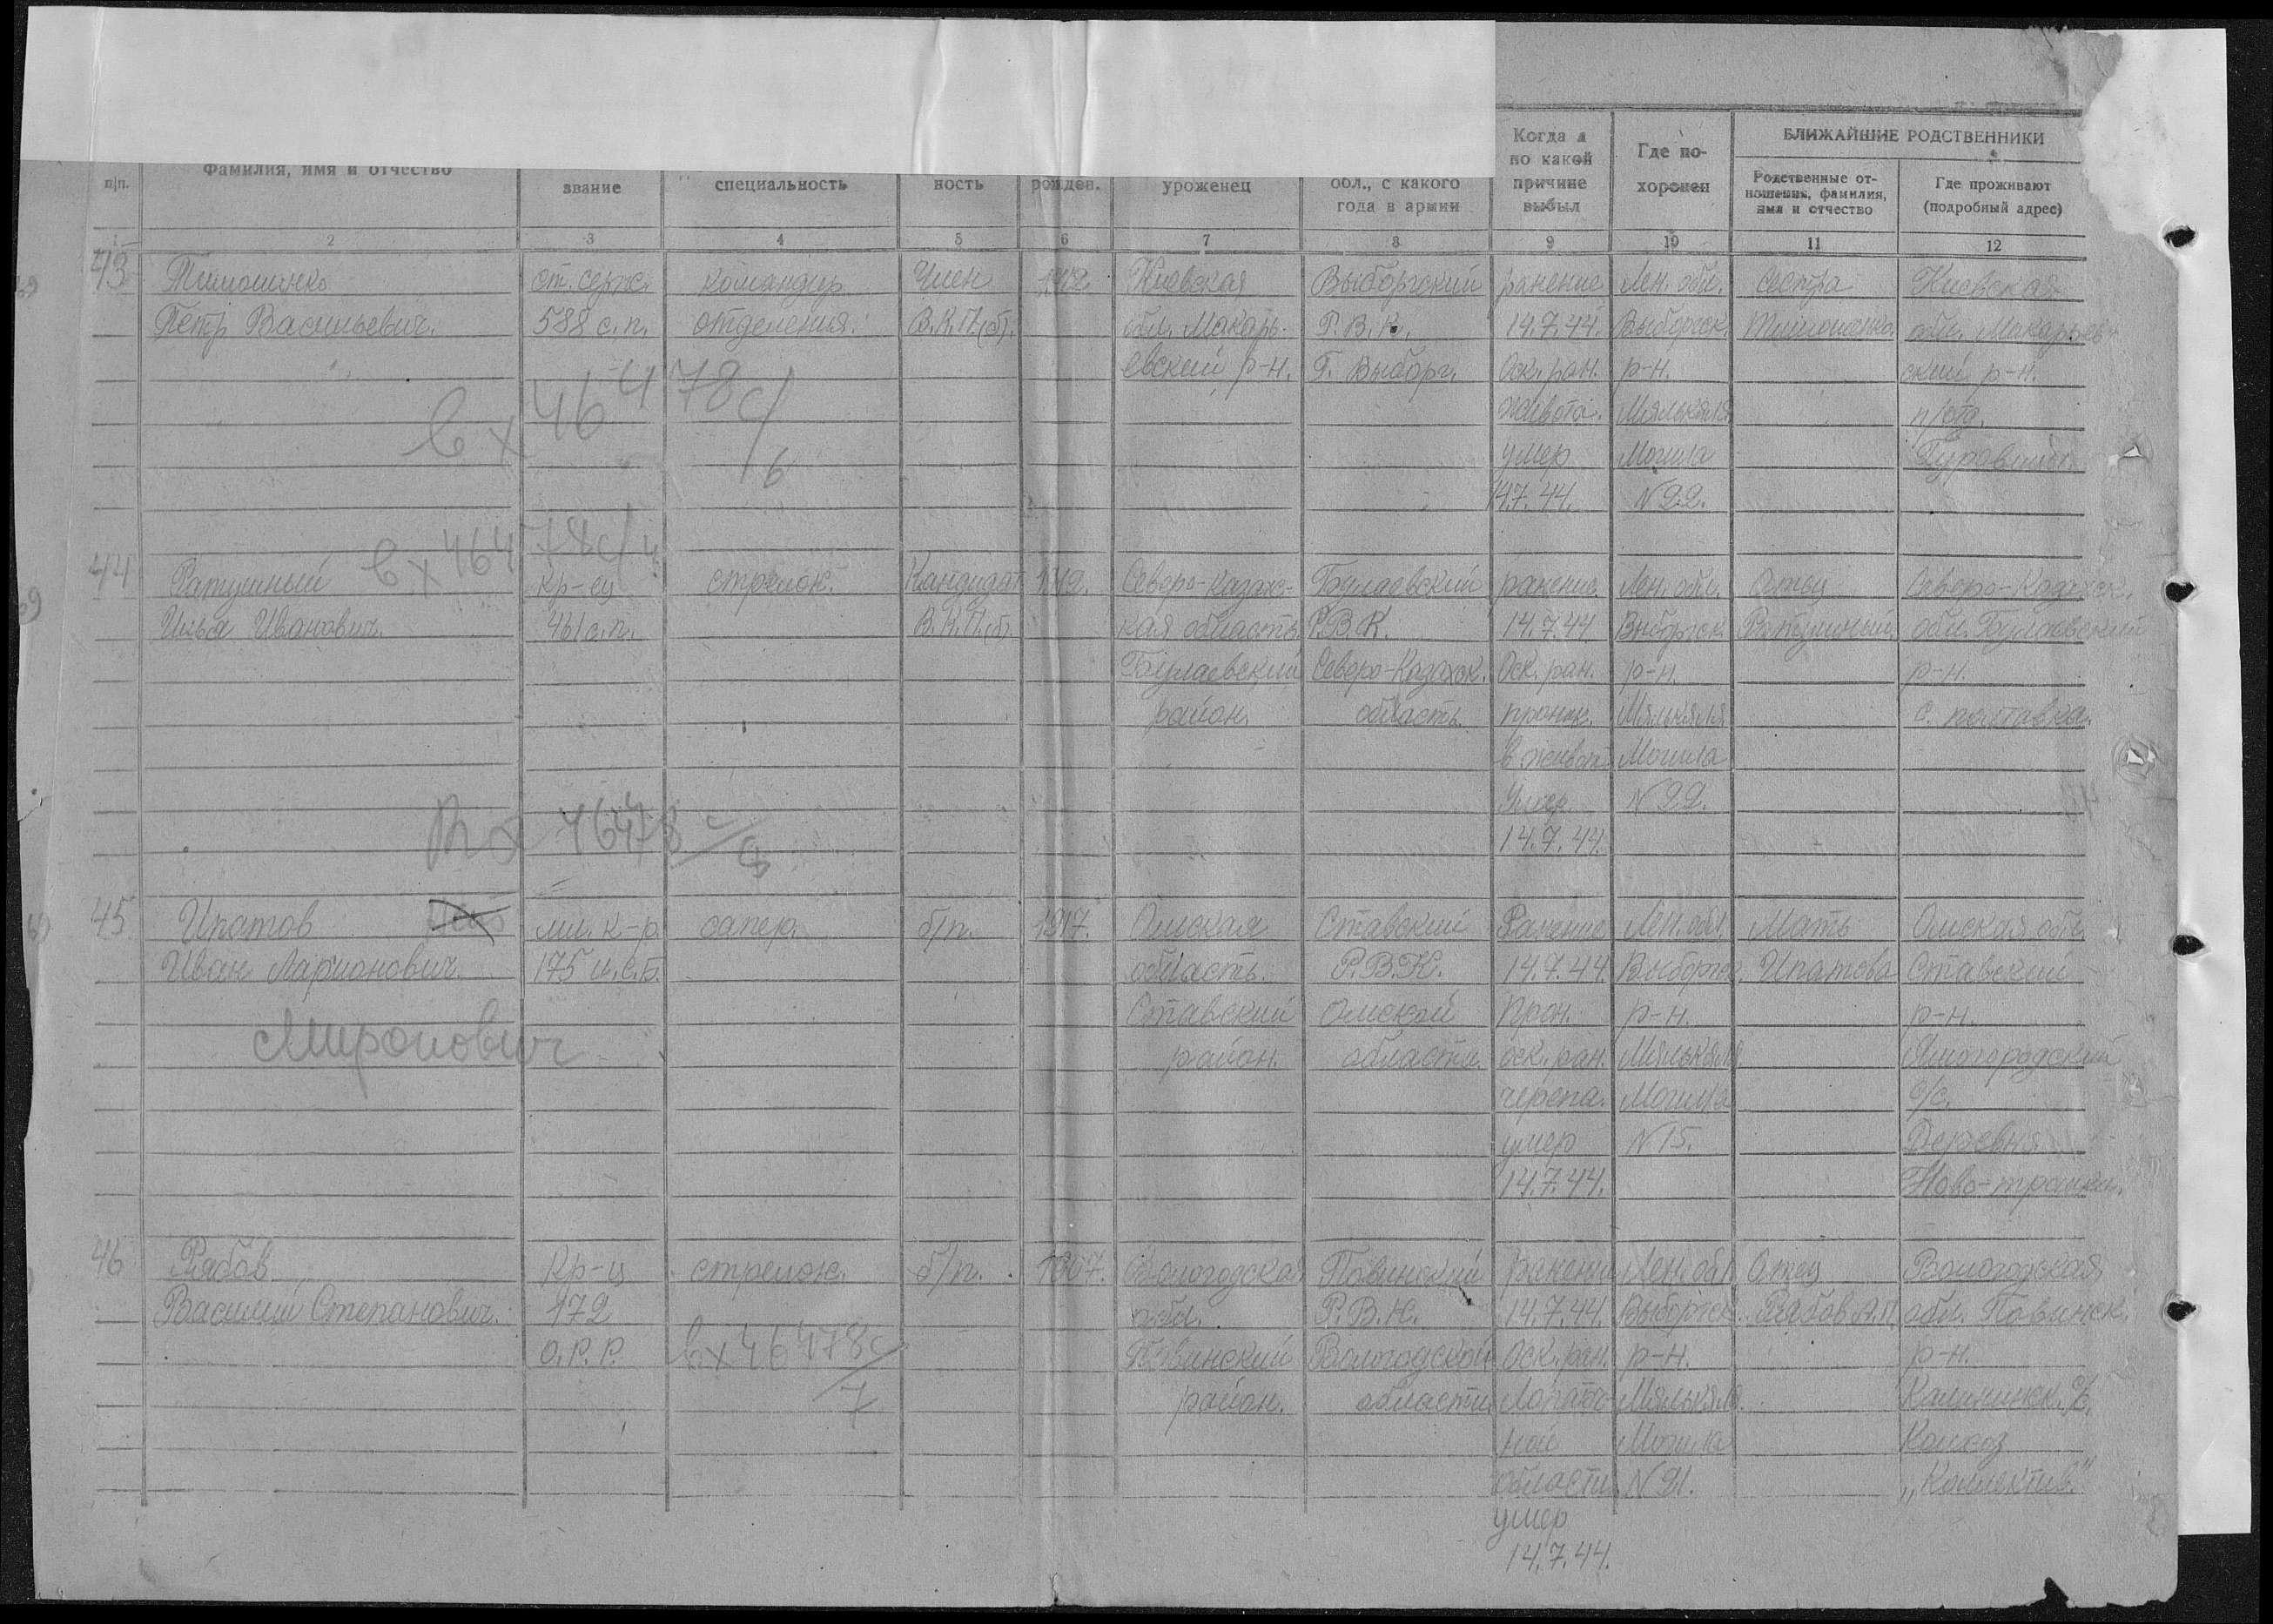 Когда и по какой причине выбыл
Где похоронен
БЛИЖАЙШИЕ РОДСТВЕННИКИ
п|п.
Фамилия, имя и отчество
звание
специальность
ность
рожден.
уроженец
обл., с какого года в армии
Родственные отношения, фамилия, имя и отчество
Где проживают (подробный адрес)
1 2 3 4 5 6 7 8 9 10 11 12
43 Тимошенко ст. серж. командир Член Киевская Выборгский ранение Лен. обл. сестра Киевская
Петр Васильевич. 588 с.п. отделения. В.К.П.(б). обл. Макарь- Р.В.К. 14.7.44. Выборгск. Тимошенко. обл. Макарьев-
евский р-н. Г. Выборг. Оск. ран. р-н. ский р-н.
вх 46478с/6 живота. Мялькяля п/отд.
умер Могила
14.7.44. N 22.
вх 46478с/4
44 Ратушный кр-ец стрелок. Кандидат Северо-Казахс- Булаевский ранение. Лен. обл. Отец Северо-Казахск.
Илья Иванович. 461 с.п. В.К.П.(б). кая область Р.В.К. 14.7.44 Выборгск. Ратушный. обл. Булаевский
Булаевский Северо-Казахск. Оск. ран. р-н. р-н.
район. область. проник. Мялькяля с. полтавка.
в живот Могила
Умер N 22.
46478с 14.7.44.
45 Ипатов мл. к-р. сапер. б/п. 1917. Омская Ставский Ранение Лен. обл. Мать Омская обл.
Иван Ларионович. 175 и.с.б. область. Р.В.К. 14.7.44. Выборгск. Ипатова Ставский
Миронович Ставский Омской Прон. р-н. р-н.
район. области. оск. ран. Мялькяля
черепа. Могила с/с.
умер N 15. Деревня
14.7.44. Ново-троицк.
46 Рябов Кр-ц стрелок. б/п. Вологодская Павинский ранение Лен. обл Отец Вологодская
Василий Степанович. 172 обл. Р.В.К. 14.7.44. Выборгск. Рябов обл. Павинск.
О.Р.Р. вх 46478с/7 Павинский Вологодской Оск. ран. р-н. р-н.
район. области Лопато- Мялькяля. Калининск. с/с.
ной Могила Колхоз
области N 21. „Коллектив."
умер
14.7.44.